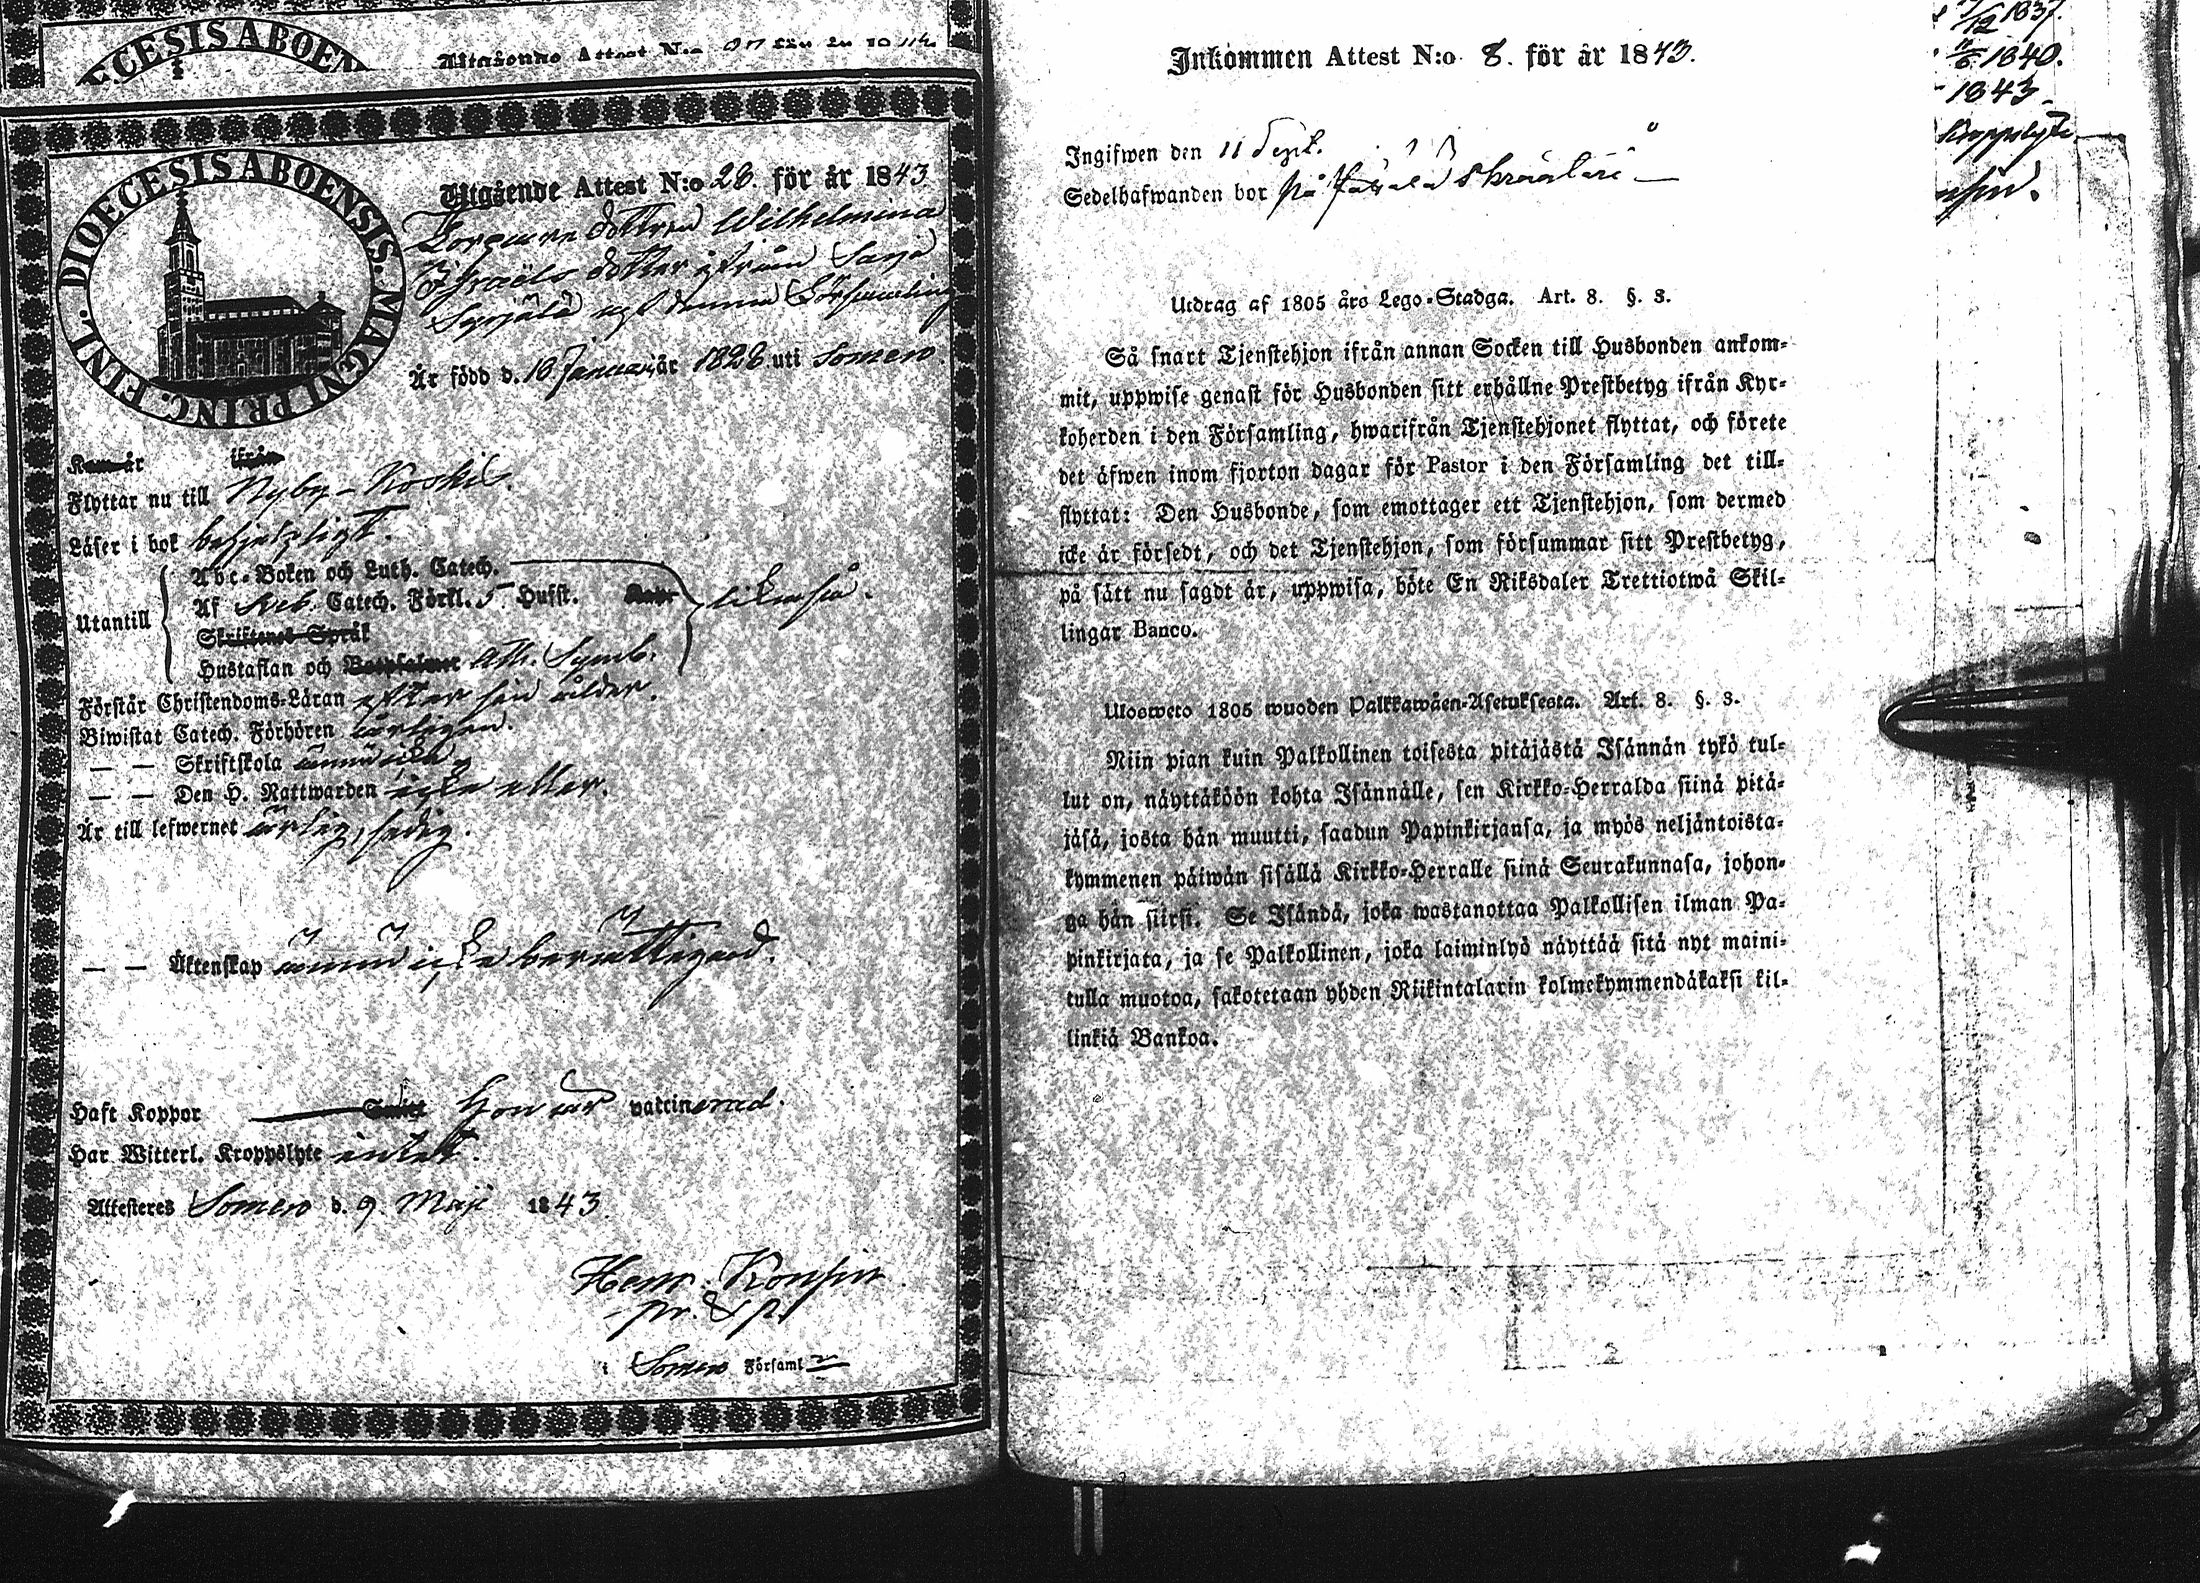 DIOECESIS ABOENSIS. MAGNI PRINC. FINL.
Utgående Attest N:o 28. för år 1843
dottren Wilhelmina
Israëls dotter ifrån
Syrjälä uti denna Församling
Är född d. 18 Januarii år 1828 uti Somero.
Kom år ifrån
Flyttar nu till Nyby-Koskis.
Läser i bok behjelpligt.
Utantill
Abc-Boken och Luth. Catech.
Af Sveb. Catech. Förkl. 5 Hufst. likaså.
Skriftenes Språk
Hustaflan och Botpsalmer Ath. Symb.
Förstår Christendoms-Läran efter sin ålder.
Biwistat Catech. Förhören årligen.
— — Skriftskola ännu icke
— — Den H. Nattwarden icke eller.
Är till lefwernet ärlig, sedig.
— — Äktenskap ännu icke berättigad.
Haft Koppor Hon är vaccinerad.
Har Witterl. Kroppslyte intet.
Attesteres Somero d. 9. Maji 1843.
Henr. Konsin
pr. & p.
i Somero Församl
Inkommen Attest N:o 8. för år 1843.
Ingifwen den 11 Sept.
Sedelhafwanden bor på
Utdrag af 1805 års Lego-Stadga. Art. 8. §. 3.
Så snart Tjenstehjon ifrån annan Socken till Husbonden ankom-
mit, uppwise genast för Husbonden sitt erhållne Prestbetyg ifrån Kyr-
koherden i den Församling, hwarifrån Tjenstehjonet flyttat, och förete
det äfwen inom fjorton dagar för Pastor i den Församling det till-
flyttat: Den Husbonde, som emottager ett Tjenstehjon, som dermed
icke är försedt, och det Tjenstehjon, som försummar sitt Prestbetyg,
på sätt nu sagdt är, uppwisa, böte En Riksdaler Trettiotwå Skil-
lingar Banco.
Ulosweto 1805 wuoden Palkkawäen-Asetuksesta. Art. 8. §. 3.
Niin pian kuin Palkollinen toisesta pitäjästä Isännän tykö tul-
lut on, näyttäköön kohta Isännälle, sen Kirkko-Herralda siinä pitä-
jäsä, josta hän muutti, saadun Papinkirjansa, ja myös neljäntoista-
kymmenen päiwän sisällä Kirkko-Herralle siinä Seurakunnasa, johon-
ga hän siirsi. Se Isändä, joka wastanottaa Palkollisen ilman Pa-
pinkirjata, ja se Palkollinen, joka laiminlyö näyttää sitä nyt maini-
tulla muotoa, sakotetaan yhden Riikintalarin kolmekymmendäkaksi kil-
linkiä Bankoa.
1837.
1840.
1843.
Kroppslyte